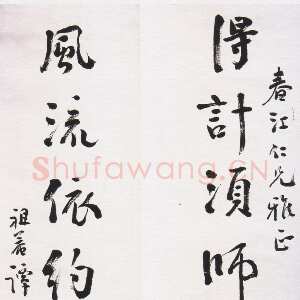 春江仁兄雅正
得計湏師
風流依約
祖菴譚
Shufawang.CN